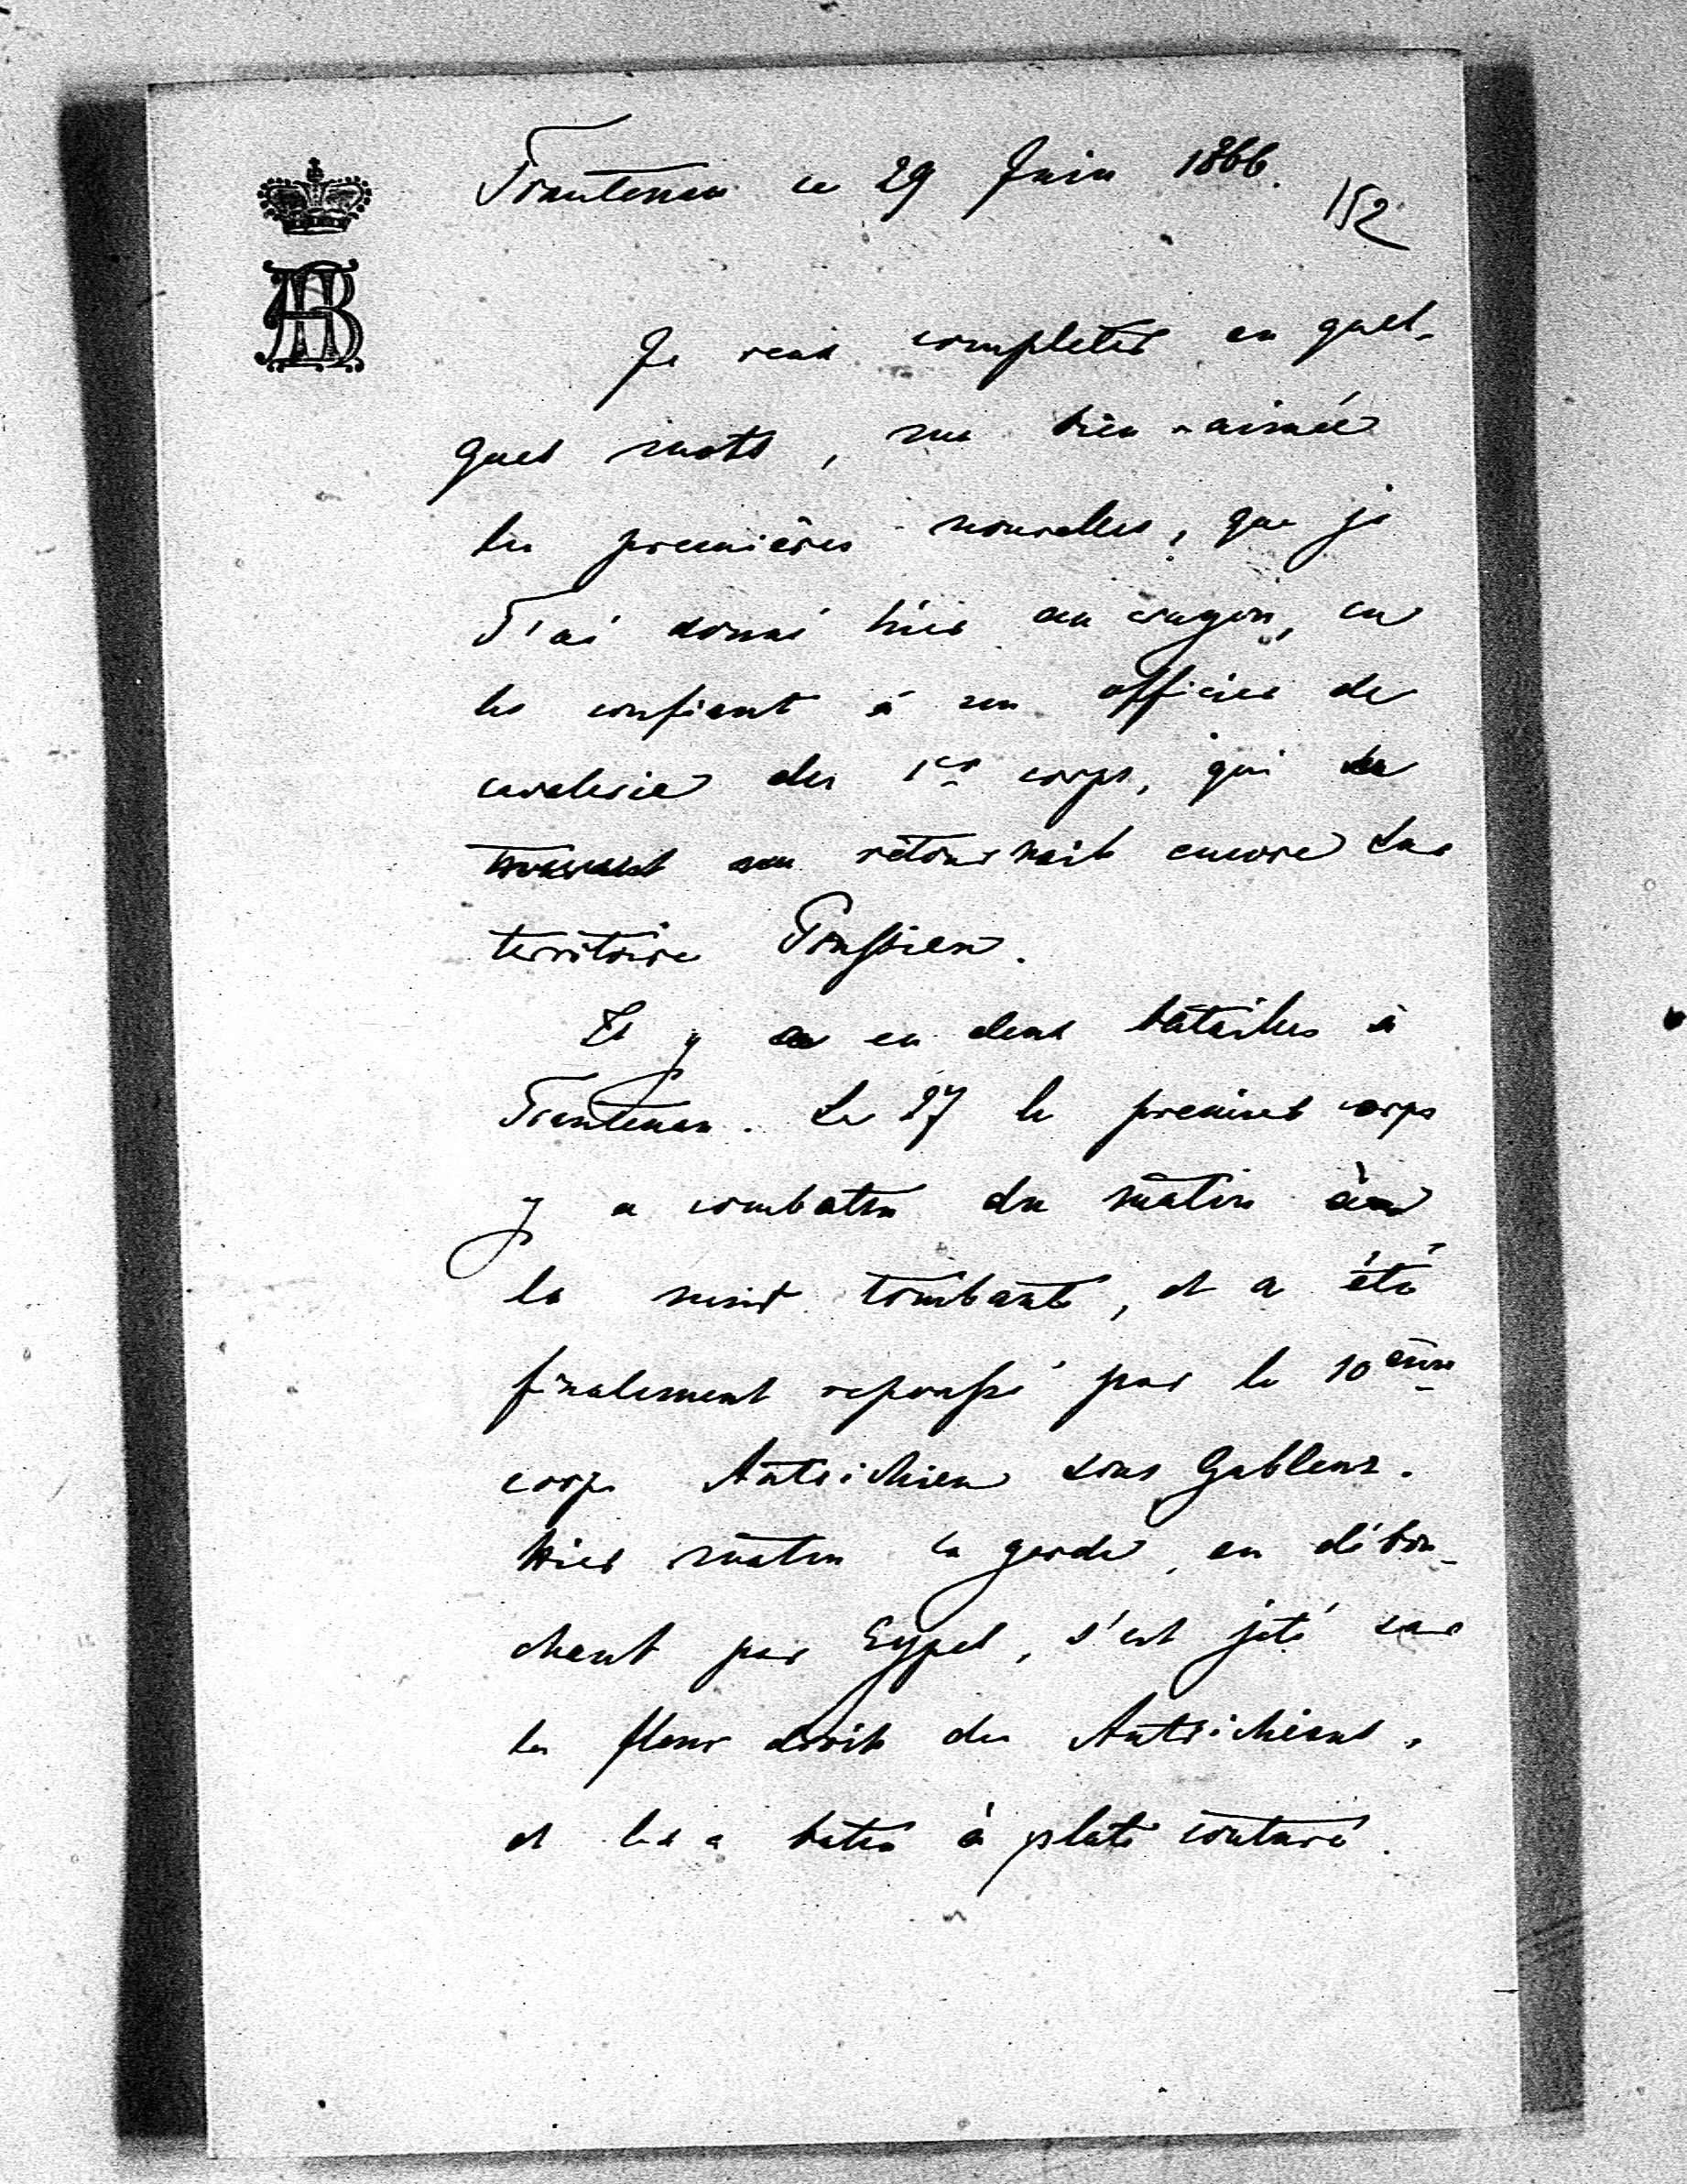 Trautenau ce 29 Juin 1866.
152
AB
Je veux completer en quel-
ques mots, ma bien-aimée
les premières nouvelles, que je
T'ai donné hier au crayon, en
les confiant à un officier de
cavalerie du 1er corps, qui
retournait encore sur
territoire Prussien.
Il y a eu deux batailles à
Trautenau. Le 27 le premier corps
y a combattu du matin à
la nuit tombante, et a été
finalement repoussé par le 10ème
corps Autrichien sous Gablenz.
Hier matin la garde, en débou-
chant par Eypel, s'est jeté sur
le flanc droit des Autrichiens,
et les a battu à plate couture.